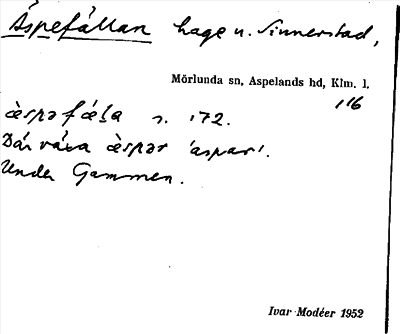 Äspefállan hage u. Sinnerstad,
Mörlunda sn, Aspelands hd, Klm. l.
116
s. 172.
Där växa äspər 'aspar'.
Under Gammen.
Ivar Modéer 1952